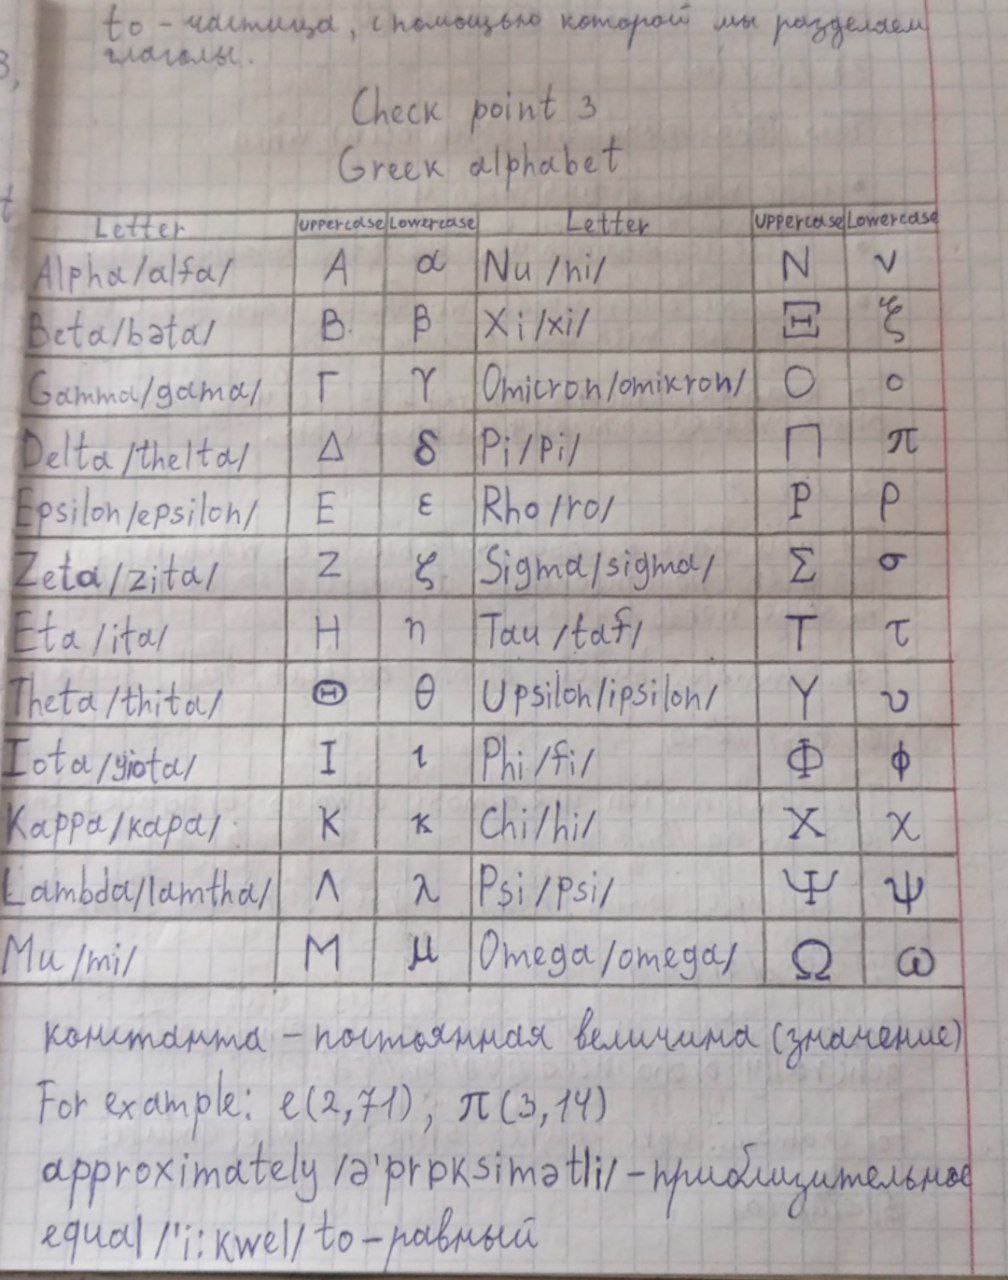 to - частица, с помощью которой мы разделаем
глаголы.
3,
Check point 3
Greek alphabet
t
Letter Uppercase Lowercase Letter Uppercase Lowercase
Alpha/alfa/ Α α Nu /ni/ Ν ν
Beta/bəta/ Β β Xi/xi/ Ξ ξ
Gamma/gama/ Γ γ Omicron/omikron/ Ο ο
Delta/thelta/ Δ δ Pi/pi/ Π π
Epsilon/epsilon/ Ε ε Rho/ro/ Ρ ρ
Zeta/zita/ Ζ ζ Sigma/sigma/ Σ σ
Eta/ita/ Η η Tau/taf/ Τ τ
Theta/thita/ Θ θ Upsilon/ipsilon/ Υ υ
Iota/yiota/ Ι ι Phi/fi/ Φ ϕ
Kappa/kapa/ Κ κ Chi/hi/ Χ χ
Lambda/lamtha/ Λ λ Psi/psi/ Ψ ψ
Mu/mi/ Μ μ Omega/omega/ Ω ω
константа - постоянная величина (значение)
For example: e(2,71), π(3,14)
approximately /ə'prɒksimətli/ - приблизительное
equal /'i:kwel/ to - равный